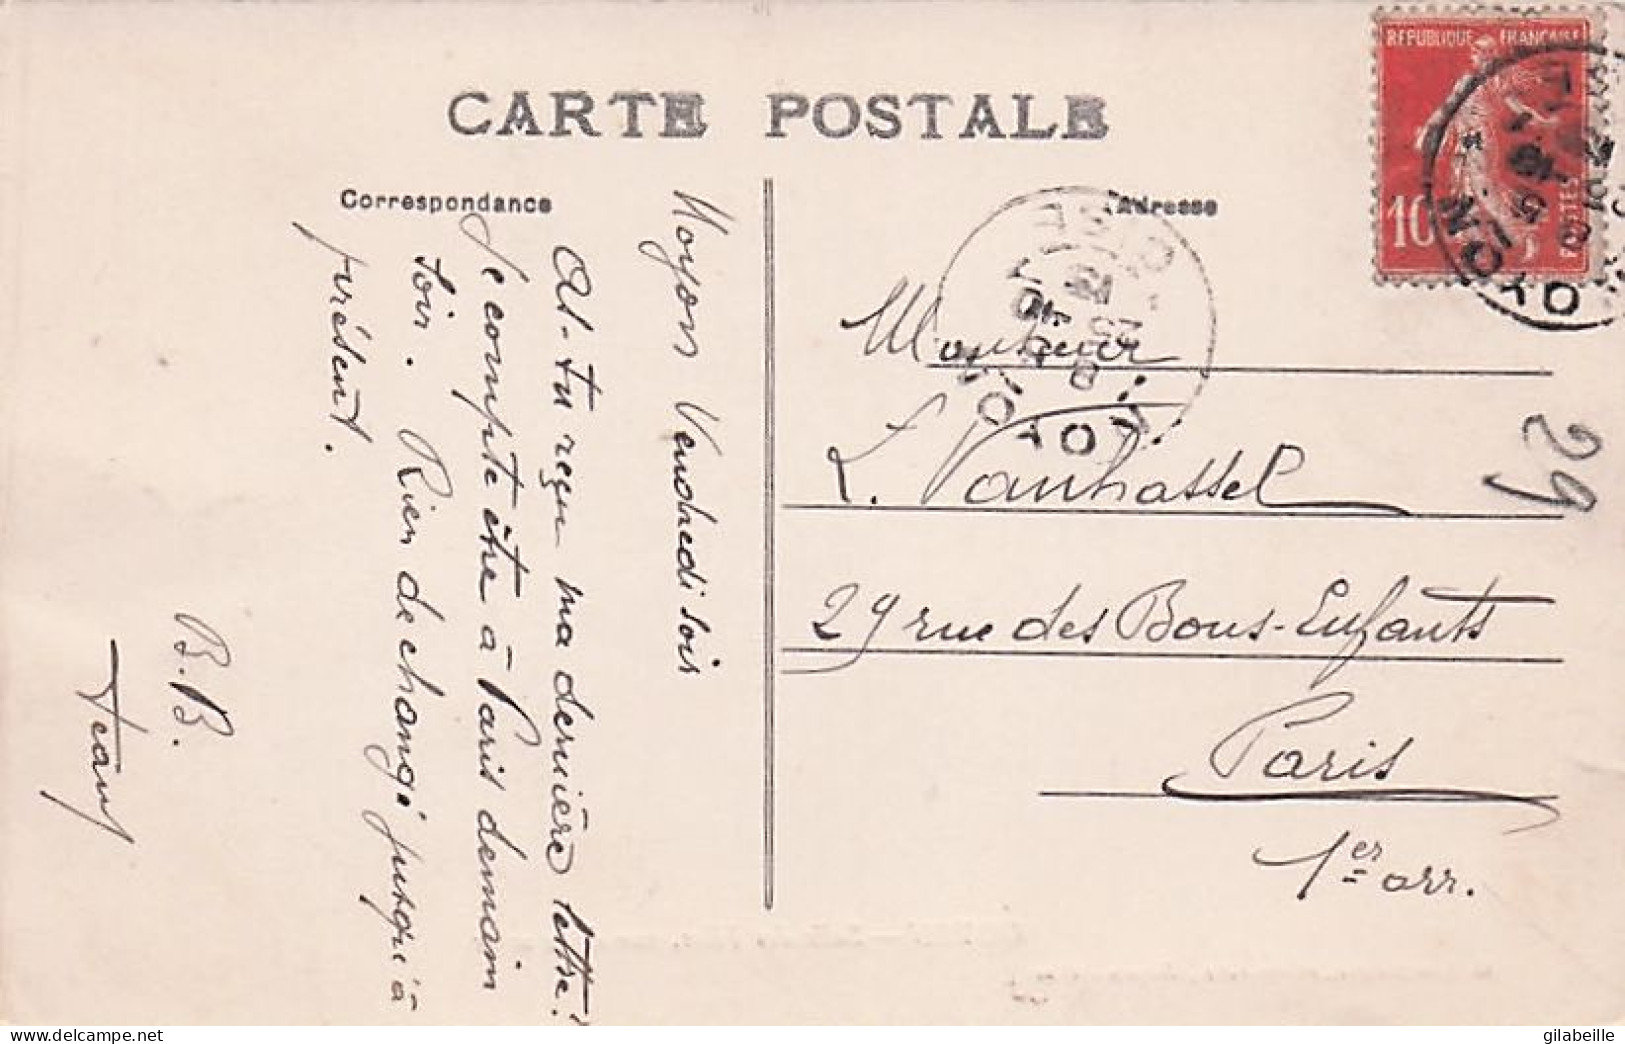 CARTE POSTALE
Correspondance
Adresse
RÉPUBLIQUE FRANÇAISE
10
POSTES
Noyon Vendredi soir
As-tu reçu ma dernière lettre?
Je compte être à Paris demain
soir. Rien de changé jusqu'à
présent.
B.B.
Monsieur
L. Vanhassel
29 rue des Bons-Enfants
Paris
1er arr.
29
NOYON
OISE
NOYON
www.delcampe.net
gilabeille